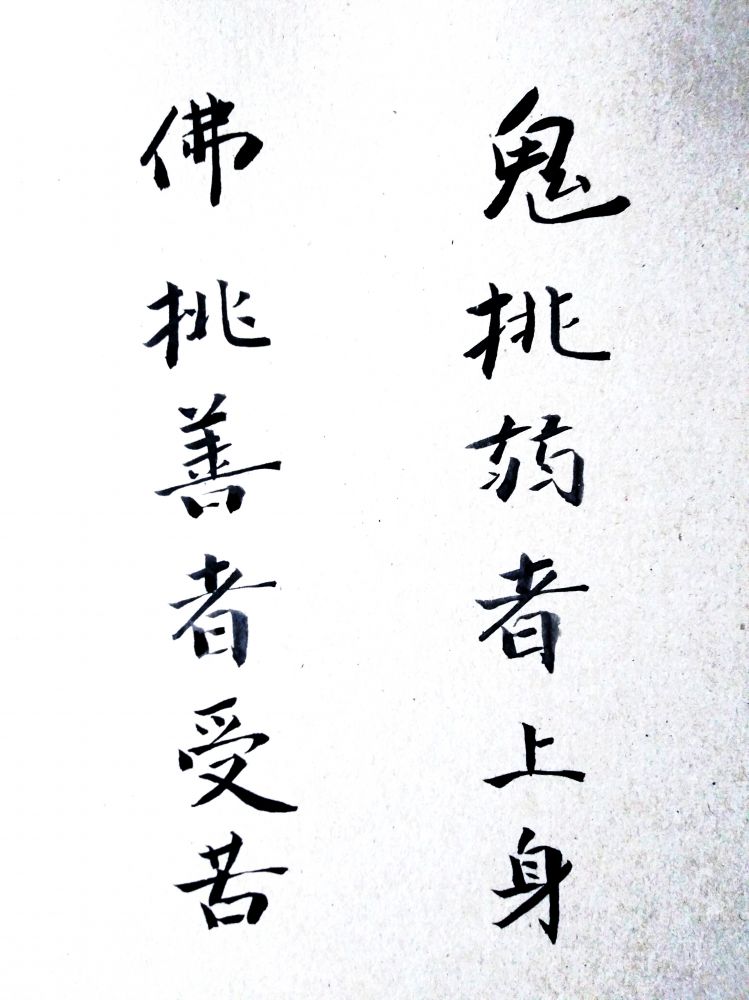 鬼挑弱者上身
佛挑善者受苦